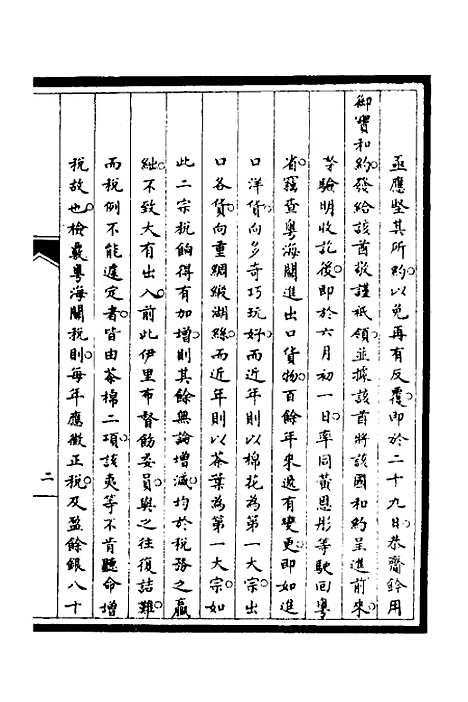 亟應堅其所約以免再有反覆即於二十九日恭齎鈐用
御寶和約發給該酋敬謹祗領並據該酋將該國和約呈進前來
等驗明收訖後即於六月初一日率同黃恩彤等駛回粵
省竊查粵海關進出口貨物百餘年來遞有變更即如進
口洋貨向多奇巧玩好而近年則以棉花為第一大宗出
口各貨向重綢緞湖絲而近年則以茶葉為第一大宗如
此二宗稅餉得有加增則其餘無論增減均於稅務之贏
絀不致大有出入前此伊里布督飭委員與之往復詰難
而稅例不能遽定者皆由茶棉二項該夷等不肯聽命增
稅故也檢覈粵海關稅則每年應徵正稅及盈餘銀八十
二